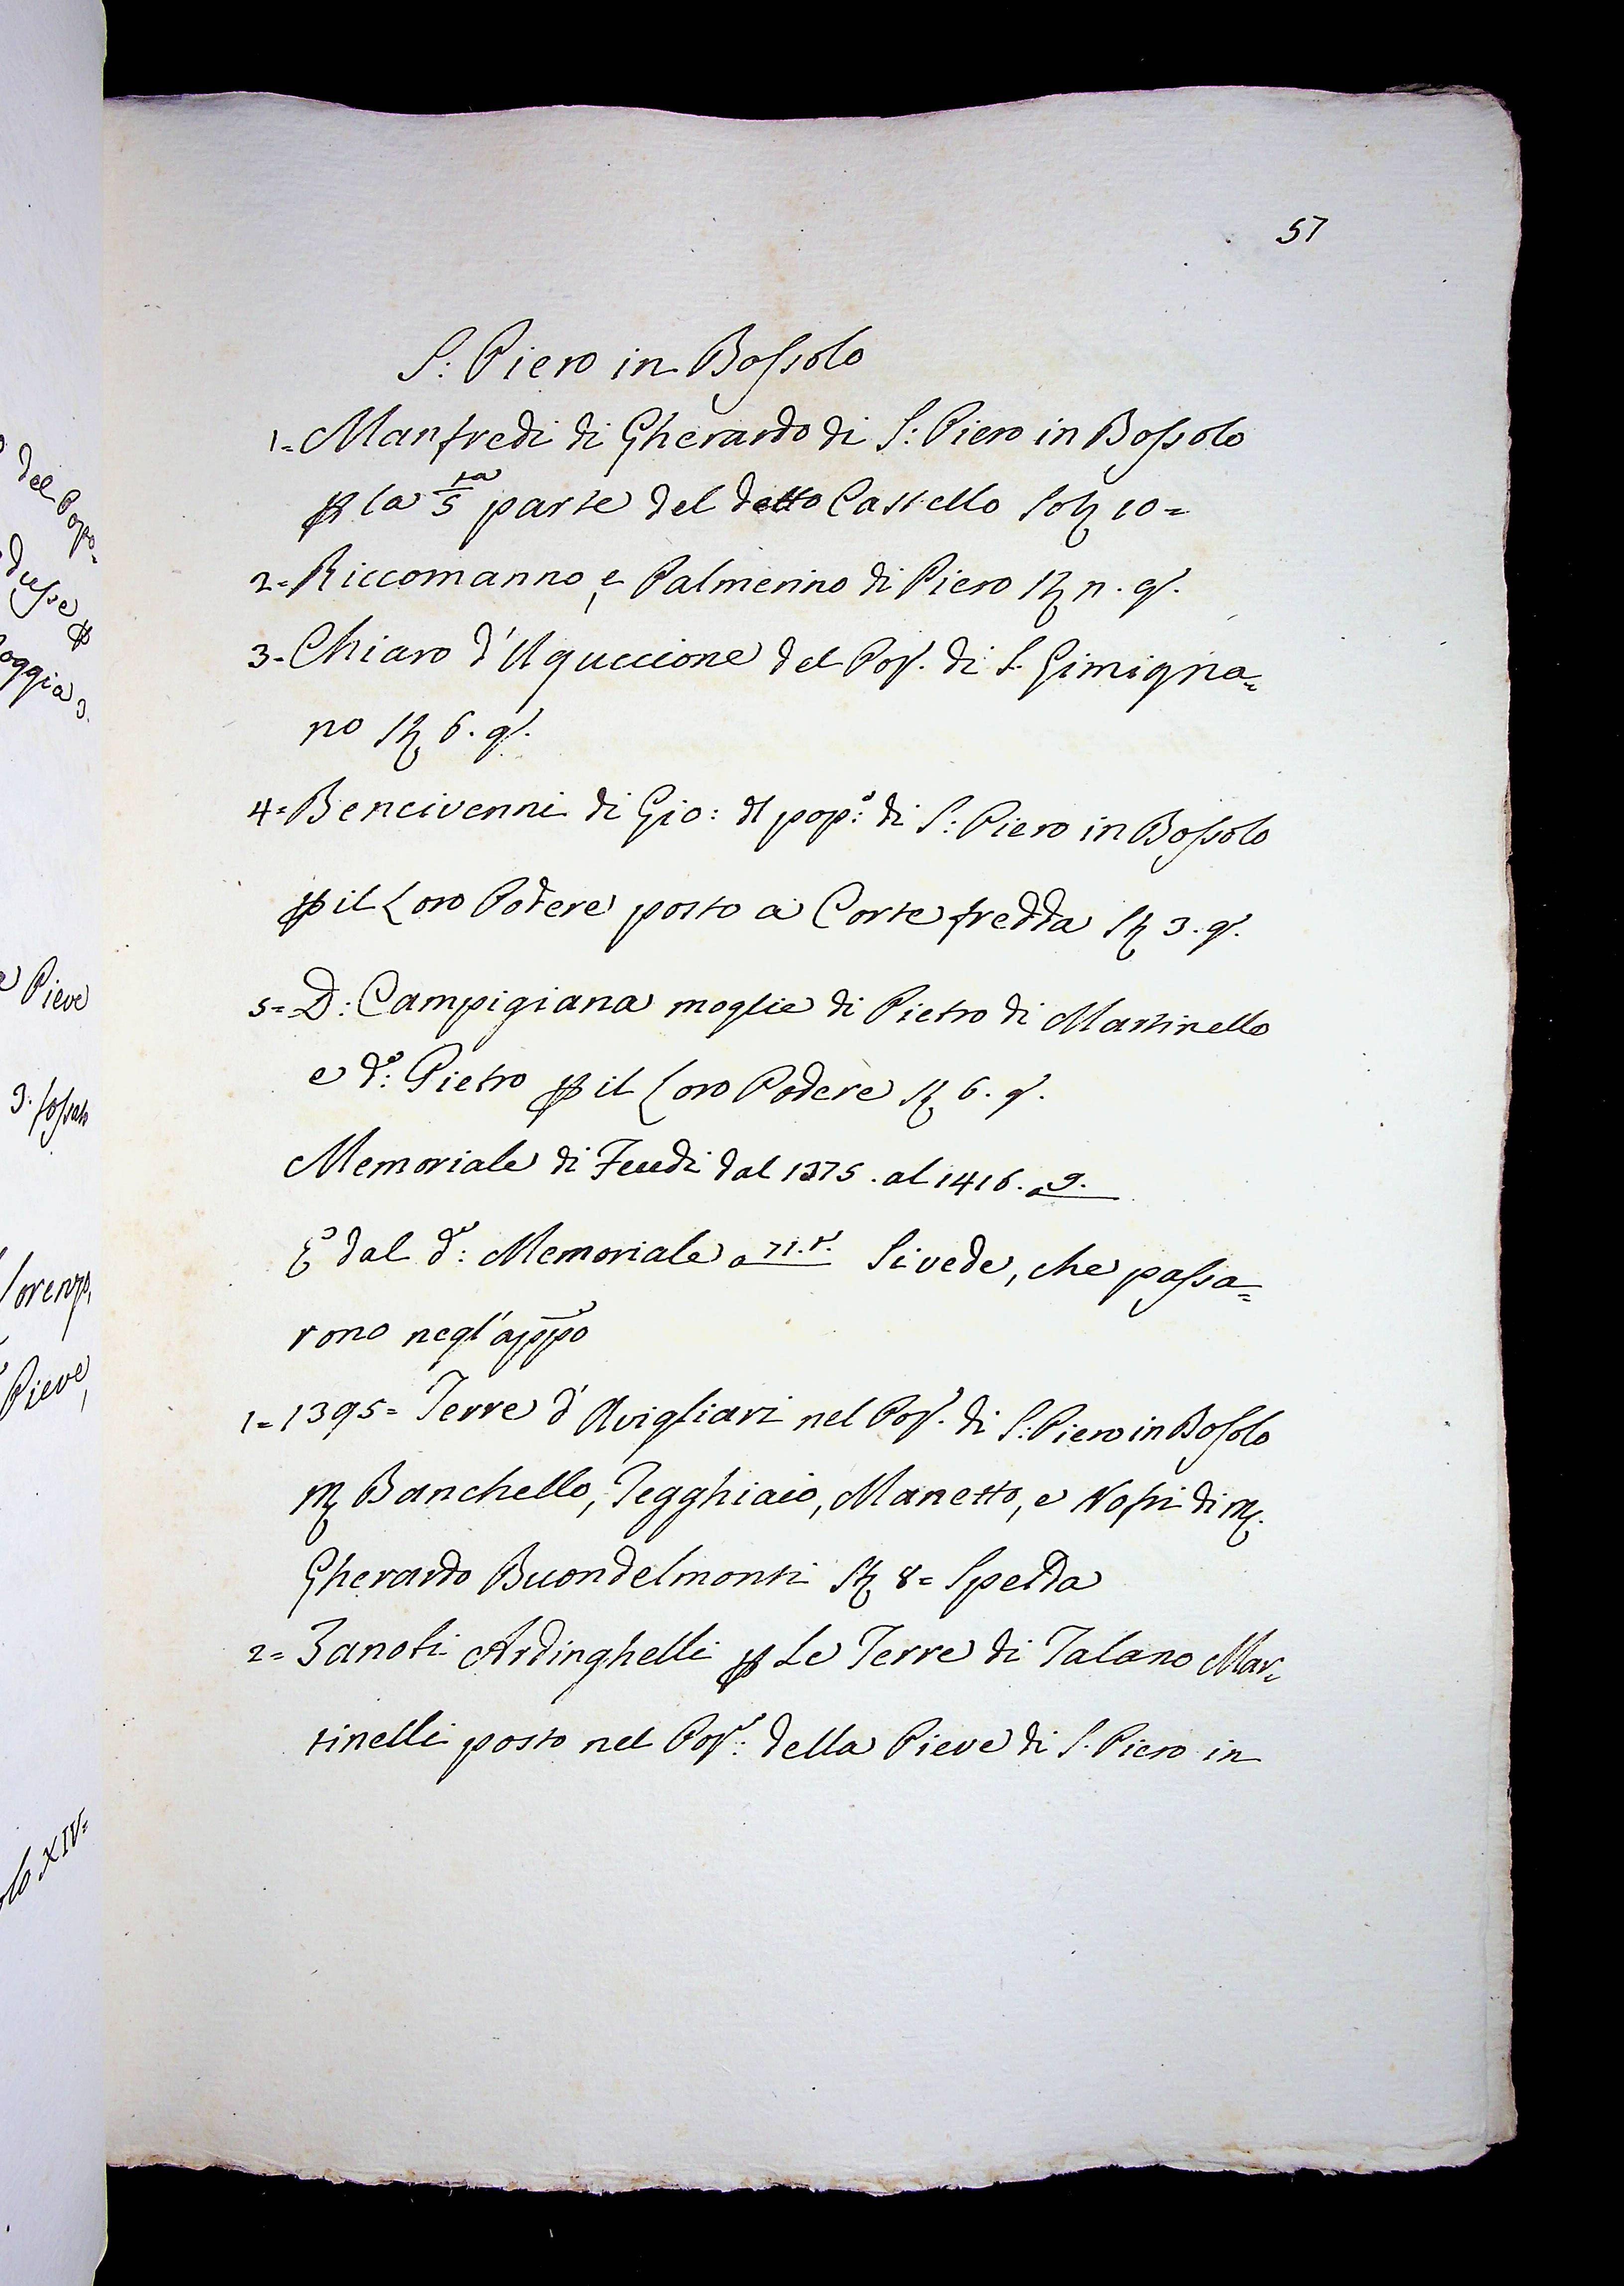 57
S: Piero in Bossolo
1= Manfredi di Gherardo di S: Piero in Bossolo
p la 5ta parte del detto Castello 10=
2= Riccomanno, e Palmerino di Piero
3= Chiaro d'Uguccione del Pop. di S. Gimigna=
no 6.
4= Bencivenni di Gio: dl pop:o di S: Piero in Bossolo
p il Loro Podere posto a Corte fredda 3.
5= D: Campigiana moglie di Pietro di Martinello
e d:o Pietro p il Loro Podere 6.
Memoriale di Feudi dal 1375. al 1416. a 9.
E dal d:o Memoriale a 71. Si vede, che passa=
rono negl'appo
1= 1395= Terre d'Avigliari nel Pop. di S: Piero in Bossolo
M Banchello, Tegghiaio, Manetto, e Nofri di M.
Gherardo Buondelmonti 8= Spelda
2= Zanobi Ardinghelli p Le Terre di Talano Mar=
tinelli posto nel Pop: della Pieve di S. Piero in
del Popo=
dusse p
oggia
Pieve
Lorenzo,
Pieve,
XIV=